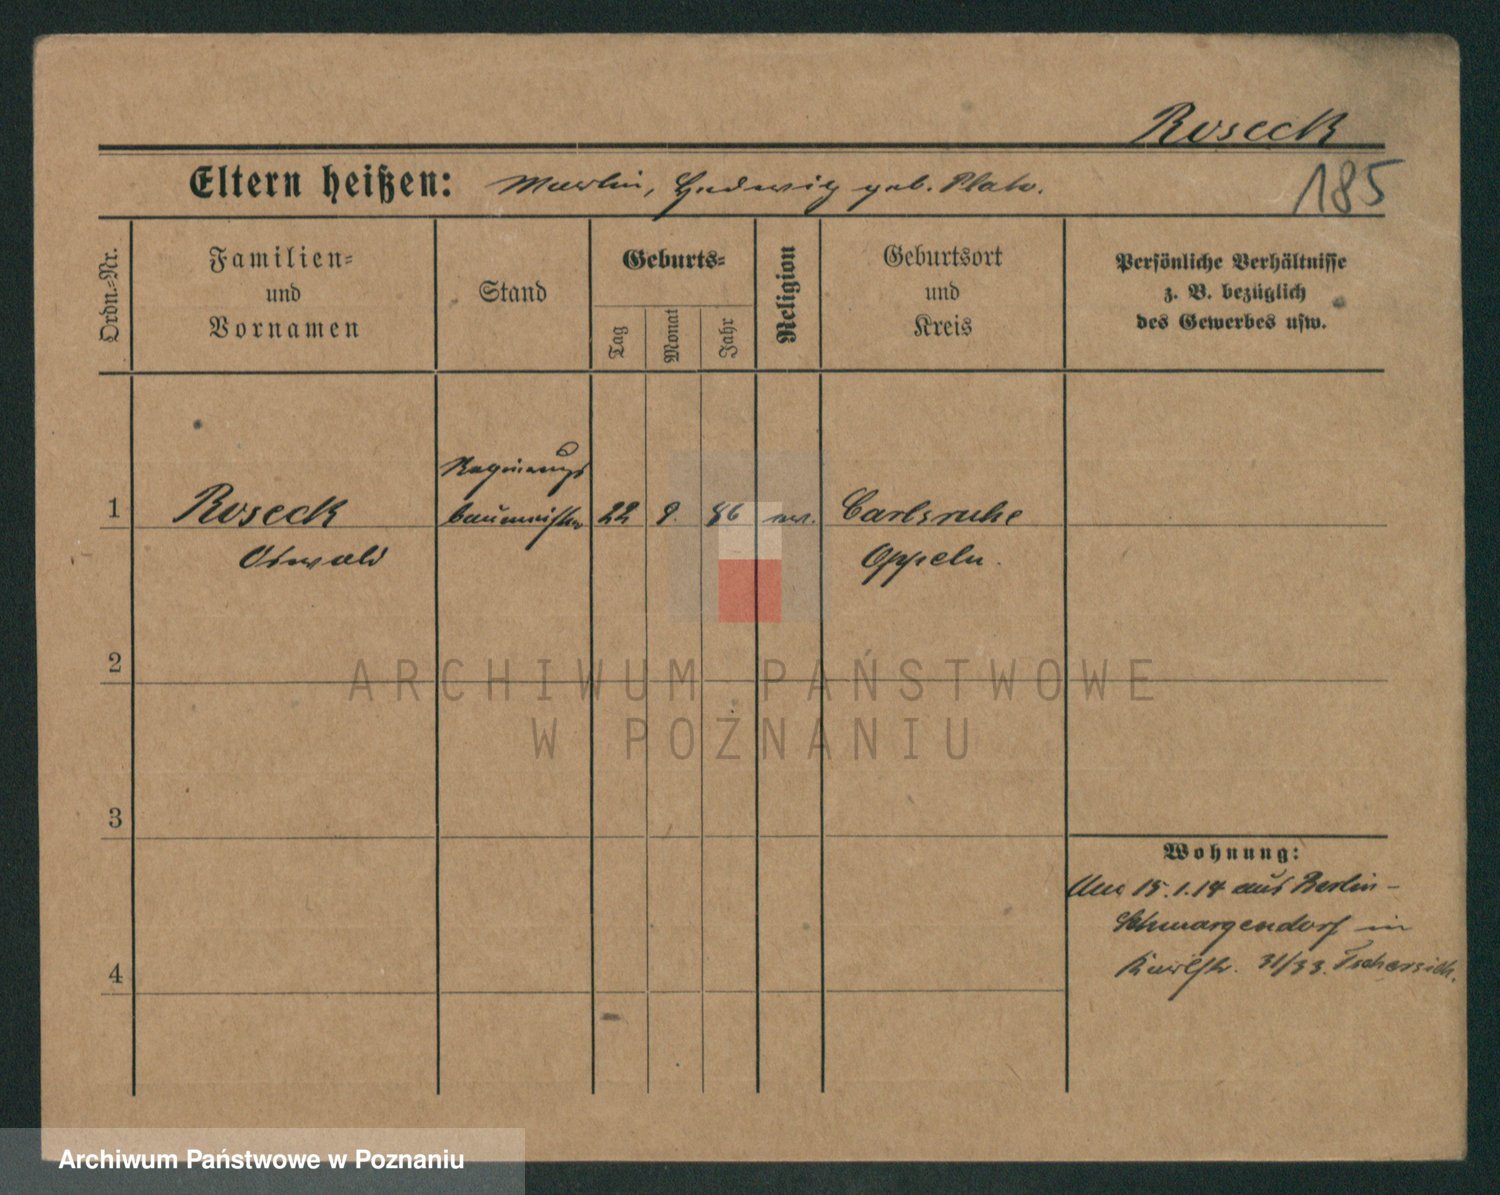 Roseck
Eltern heißen: Martin, Hedwig geb. Plato.
185
Ordn.-Nr.
Familien-
und
Vornamen
Stand
Geburts-
Tag
Monat
Jahr
Religion
Geburtsort
und
Kreis
Persönliche Verhältnisse
z. B. bezüglich
des Gewerbes usw.
Regierungs
1 Roseck baumeister 22 9. 86 ev. Carlsruhe
Oswald Oppeln.
2
ARCHIWUM PAŃSTWOWE
W POZNANIU
3
Wohnung:
15.1.14 aus Berlin-
Schmargendorf in
4
31/33.
Archiwum Państwowe w Poznaniu